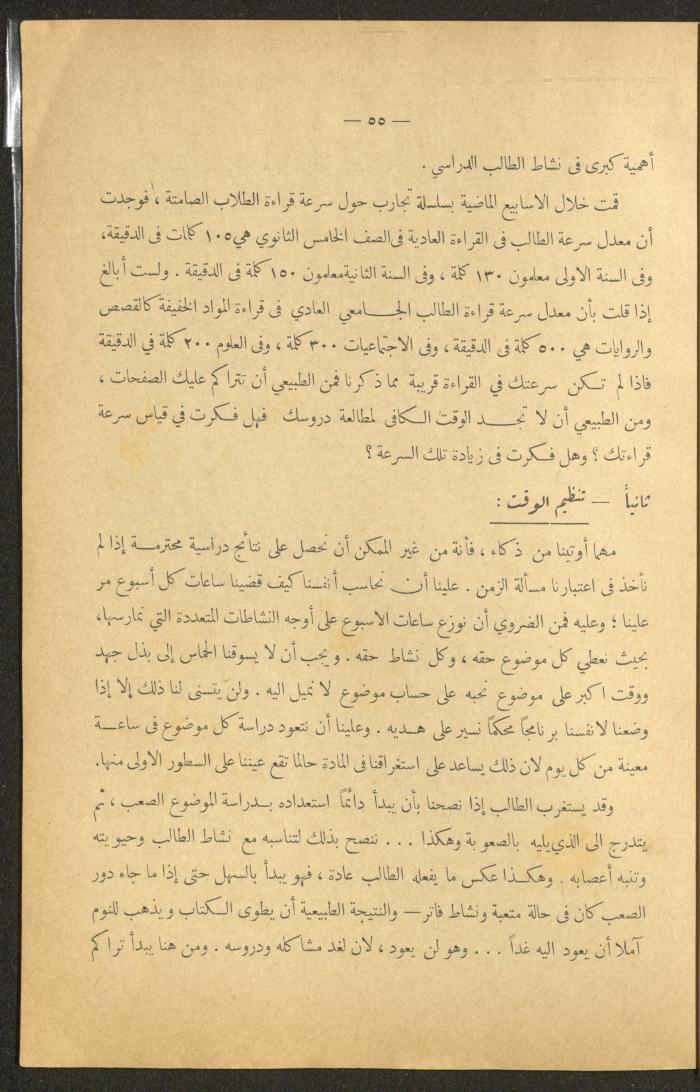 — ٥٥ —
أهمية كبرى فى نشاط الطالب الدراسي .
قمت خلال الاسابيع الماضية بسلسلة تجارب حول سرعة قراءة الطلاب الصامتة ، فوجدت
أن معدل سرعة الطالب فى القراءة العادية فى الصف الخامس الثانوي هي ١٠٥ كلمات فى الدقيقة،
وفى السنة الاولى معلمون ١٣٠ كلمة ، وفى السنة الثانية معلمون ١٥٠ كلمة فى الدقيقة . ولست أبالغ
إذا قلت بأن معدل سرعة قراءة الطالب الجامعي العادي فى قراءة المواد الخفيفة كالقصص
والروايات هي ٥٠٠ كلمة فى الدقيقة ، وفى الاجتماعيات ٣٠٠ كلمة ، وفى العلوم ٢٠٠ كلمة في الدقيقة
فاذا لم تكن سرعتك في القراءة قريبة مما ذكرنا فمن الطبيعي أن تتراكم عليك الصفحات ،
ومن الطبيعي أن لا تجد الوقت الكافى لمطالعة دروسك فهل فكرت في قياس سرعة
قراءتك ؟ وهل فكرت فى زيادة تلك السرعة ؟
ثانياً — تنظيم الوقت :
مهما أوتينا من ذكاء ، فأنة من غير الممكن أن نحصل على نتائج دراسية محترمة إذا لم
نأخذ فى اعتبارنا مسألة الزمن . علينا أن نحاسب أنفسنا كيف قضينا ساعات كل أسبوع مر
علينا ؛ وعليه فمن الضروي أن نوزع ساعات الاسبوع على أوجه النشاطات المتعددة التي نمارسها،
بحيث نعطي كل موضوع حقه ، وكل نشاط حقه . ويجب أن لا يسوقنا الحماس إلى بذل جهد
ووقت اكبر على موضوع نحبه على حساب موضوع لا نميل اليه . ولن يتسنى لنا ذلك إلا إذا
وضعنا لانفسنا برنامجاً محكماً نسير على هديه . وعلينا أن نتعود دراسة كل موضوع فى ساعة
معينة من كل يوم لان ذلك يساعد على استغراقنا فى المادة حالما تقع عيننا على السطور الاولى منها.
وقد يستغرب الطالب إذا نصحنا بأن يبدأ دائماً استعداده بدراسة الموضوع الصعب ، ثم
يتدرج الى الذي يليه بالصعوبة وهكذا . . . ننصح بذلك لتناسبه مع نشاط الطالب وحيويته
وتنبه أعصابه . وهكذا عكس ما يفعله الطالب عادة ، فهو يبدأ بالسهل حتى إذا ما جاء دور
الصعب كان فى حالة متعبة ونشاط فاتر — والنتيجة الطبيعية أن يطوى الكتاب ويذهب للنوم
آملا أن يعود اليه غداً . . . وهو لن يعود ، لان لغد مشاكله ودروسه . ومن هنا يبدأ تراكم